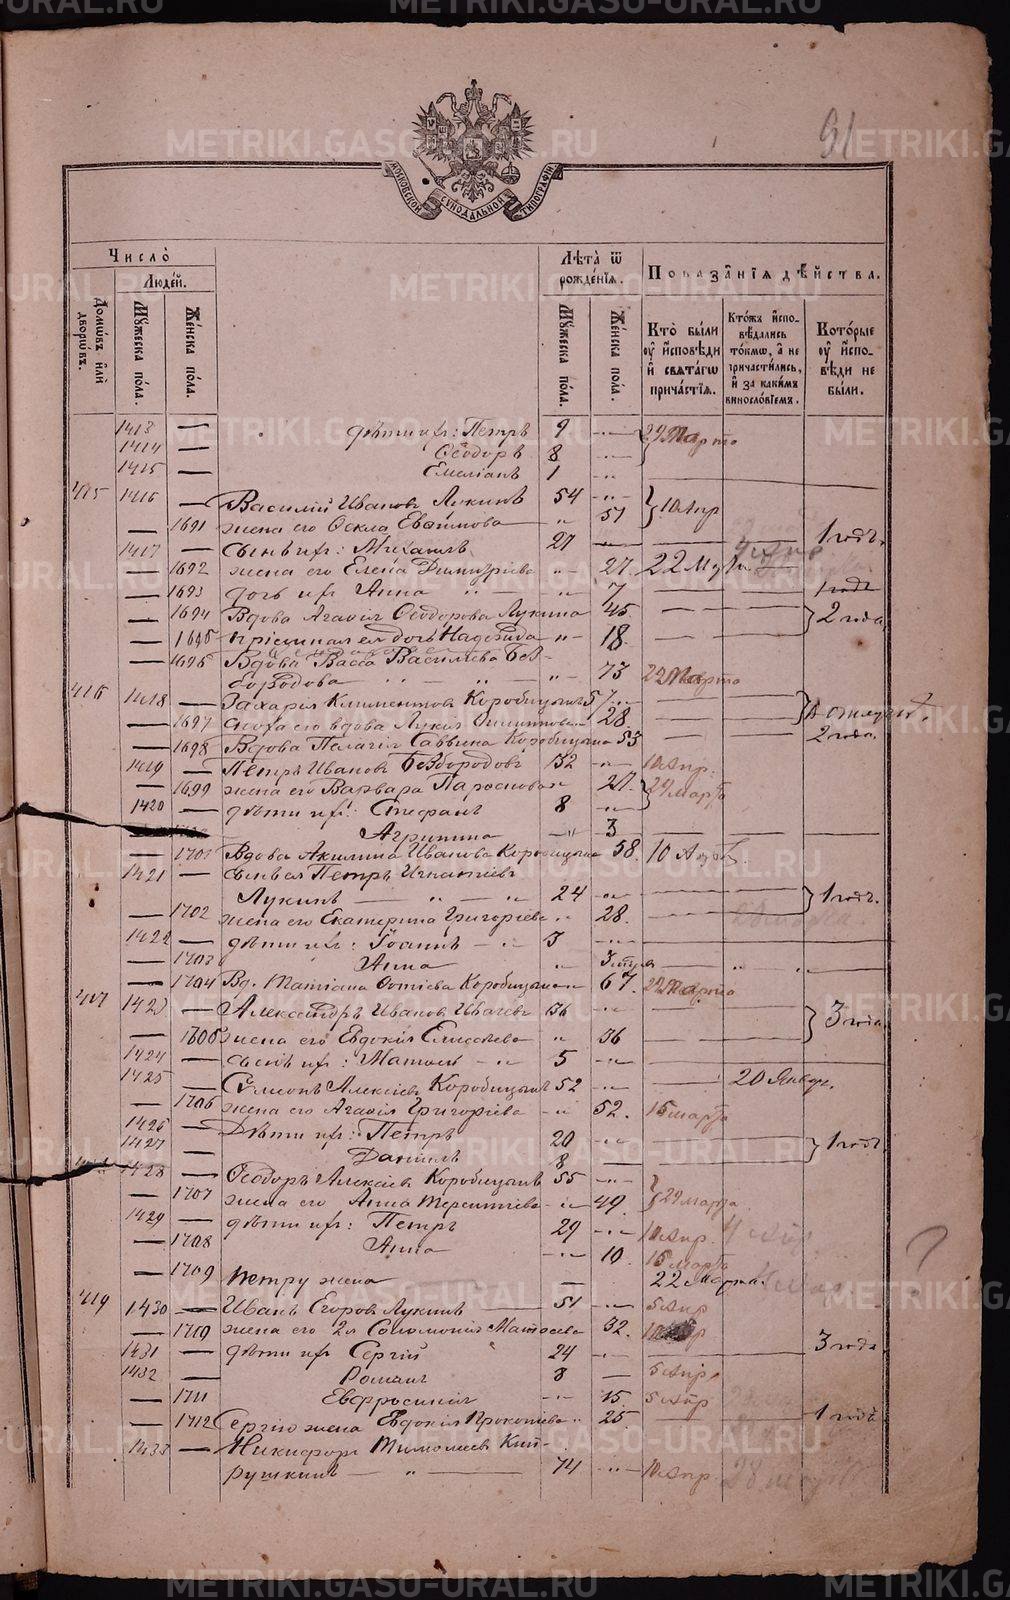 91
МОСКОВСКОЙ СѴНОДАЛЬНОЙ ТИПОГРАФІИ
Число̀
Людей.
Домѡвъ или дворѡвъ.
Мꙋжеска пола.
Женска пола.
Лѣта ѿ рожденїѧ.
Мꙋжеска пола.
Женска пола.
Показанїѧ дѣйства.
Кто были ᲂу исповѣди и свѧтагѡ причастїѧ.
Ктожъ исповѣдались токмѡ, а не причастились, и за какимъ винословїемъ.
Которые ᲂу исповѣди не были.
1413 — дѣти ихъ: Петръ 9 29 Марта
1414 — Ѳеодоръ 8
1415 — Емеліанъ 1
415 1416 — Василій Ивановъ Лукинъ 54 10 Апр
— 1691 жена его Ѳекла Евѳимова 51
1417 — сынъ ихъ: Михаилъ 27 — 1 годъ
— 1692 жена его Елена Димитріева 27 22 Мар
— 1693 дочь ихъ Анна 7 1 годъ
— 1694 Вдова Агаѳія Ѳеодорова Лукина 45 2 года
— 1695 дочь Надежда 18
— 1696 Вдова Васса Василіева Без-
бородова 73 29 Марта
416 1418 — Захарія Климентовъ Коробицынъ 57
— 1697 сноха его вдова Лукія 28
— 1698 Вдова Пелагія Саввина Коробицына 53 2 года.
1419 — Петръ Ивановъ Безбородовъ 32 10 Апр.
— 1699 жена его Варвара 27 29 Марта
1420 — дѣти ихъ: Стефанъ 8
Агрипина 3
— 1701 Вдова Акилина Иванова Коробицына 58. 10 Апр
1421 — Петръ Игнатіевъ
Лукинъ 24 1 годъ.
— 1702 жена его Екатерина Григоріева 28.
1422 — дѣти ихъ: Іоаннъ 3
— 1703 Анна
— 1704 Вд. Татіана Коробицына 67. 29 Марта
417 1423 — Александръ Ивановъ 36 3 года
— 1705 жена его Евдокія Елисѣева 36
1424 — сынъ ихъ: Матѳей 5
1425 — Сѵмеонъ Алексѣевъ Коробицынъ 52 20 Январ.
— 1706 жена его Агаѳія Григоріева 52. 15 марта
1426 — Дѣти ихъ: Петръ 20
1427 — Даніилъ 8 — 1 годъ
1428 — Ѳеодоръ Алексѣевъ Коробицынъ 55 29 марта
— 1707 жена его Анна Терентіева 49.
1429 — дѣти ихъ: Петръ 29 10 Апр.
— 1708 Анна 10 15 марта
— 1709 Петру жена — 22 Марта.
?
419 1430 — Иванъ Егоровъ Лукинъ 51 5 Апр
— 1710 жена его 2я Соломонія Матѳеева 32.
1431 — дѣти ихъ Сергій 24 — 3 года
1432 — Романъ 8 — 5 Апр
— 1711 Евфросинія 15 5 Апр
— 1712 Сергію жена Евдокія Прокопіева 25 1 годъ
1433 — Никифоръ Тимоѳеевъ Кит-
рушкинъ 74 10 Апр.
METRIKI.GASO-URAL.RU